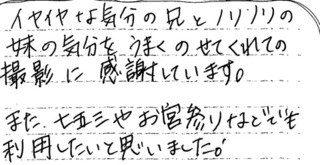 イヤイヤな気分の兄とノリノリの
妹の気分をうまくのせてくれての
撮影に感謝しています。
また、七五三やお宮参りなどでも
利用したいと思いました。